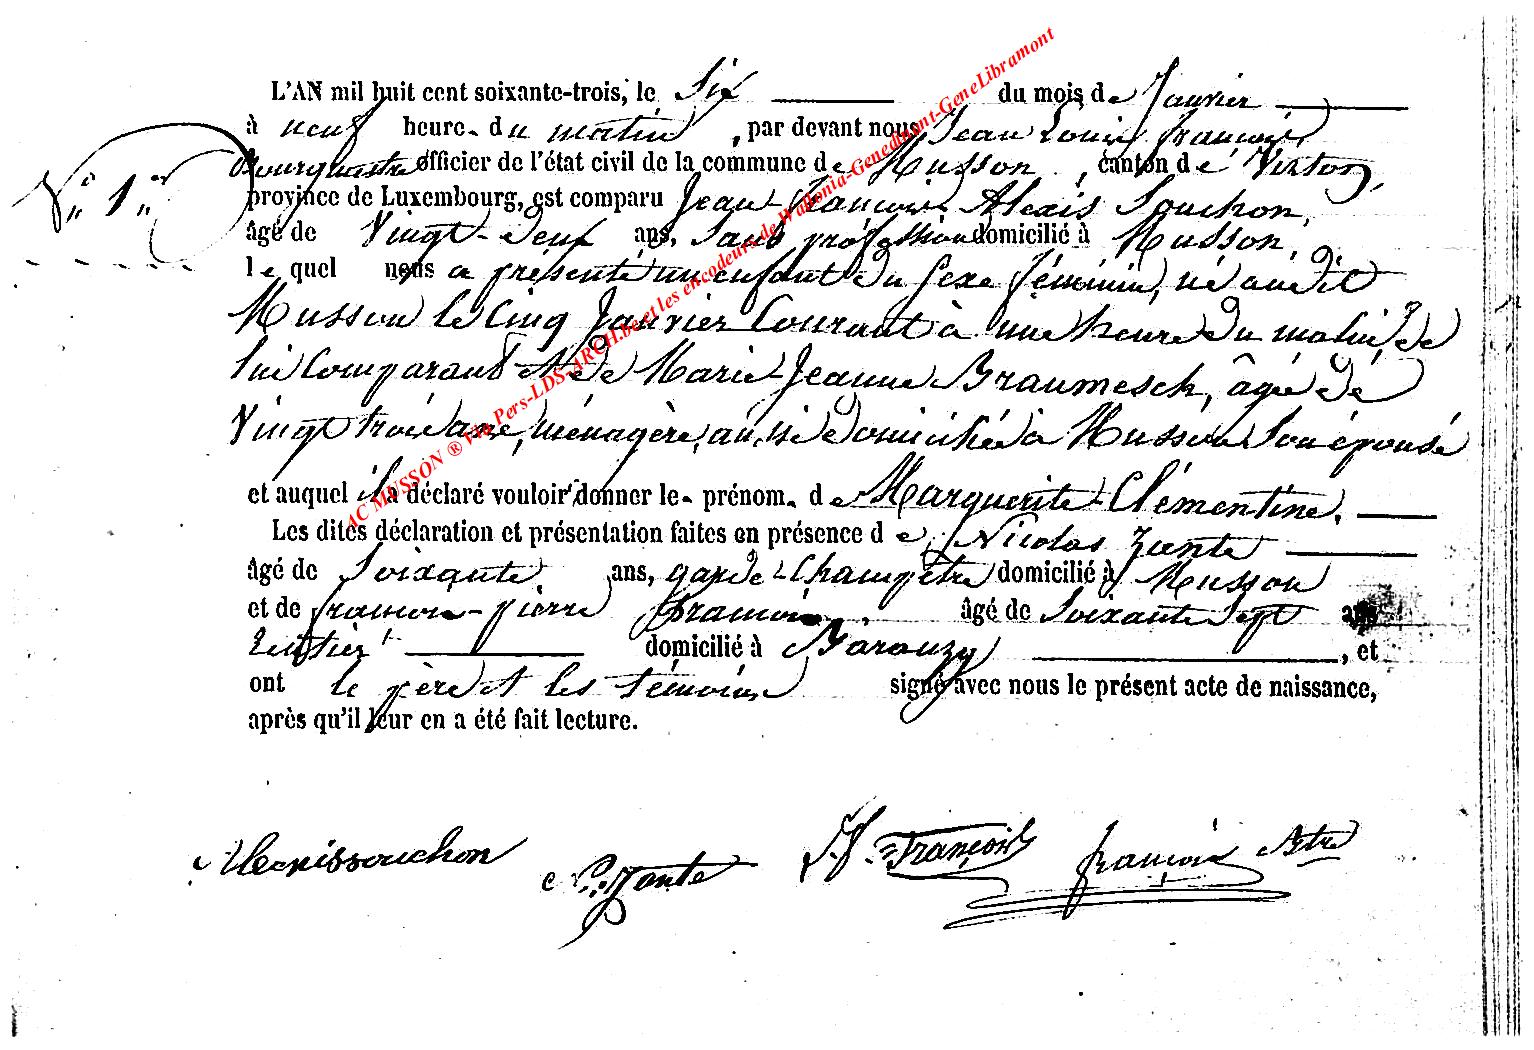 L'AN mil huit cent soixante-trois, le Six du mois de Janvier
à neuf heure. du matin, par devant nous Jean Louis françois
Bourguestre officier de l'état civil de la commune de Musson, canton de Virton,
N° 1er
province de Luxembourg, est comparu Jean-François Alexis Souchon,
âgé de Vingt-Deuf ans, Sans profession domicilié à Musson,
le quel nous a présenté un enfant du Sexe féminin, né audit
Musson le Cinq Janvier Courant à une heure du matin, de
lui Comparant et de Marie-Jeanne Braumesch, âgée de
Vingt trois ans, ménagère, aussi domiciliée à Musson Son épouse
et auquel il a déclaré vouloir donner le. prénom. de Marguerite-Clémentine.
Les dites déclaration et présentation faites en présence de Nicolas Zante
âgé de Soixante ans, garde-Champêtre domicilié à Musson
et de françois-pierre François âgé de Soixante Sept ans
Rentier domicilié à Baranzy, et
ont le père et les témoins signé avec nous le présent acte de naissance,
après qu'il leur en a été fait lecture.
Alexissouchon N. Zante François françois Btre
AC MUSSON ® via Pers-LDS-ARCH.be et les encodeurs de Wallonia-Genedinant-GeneLibramont